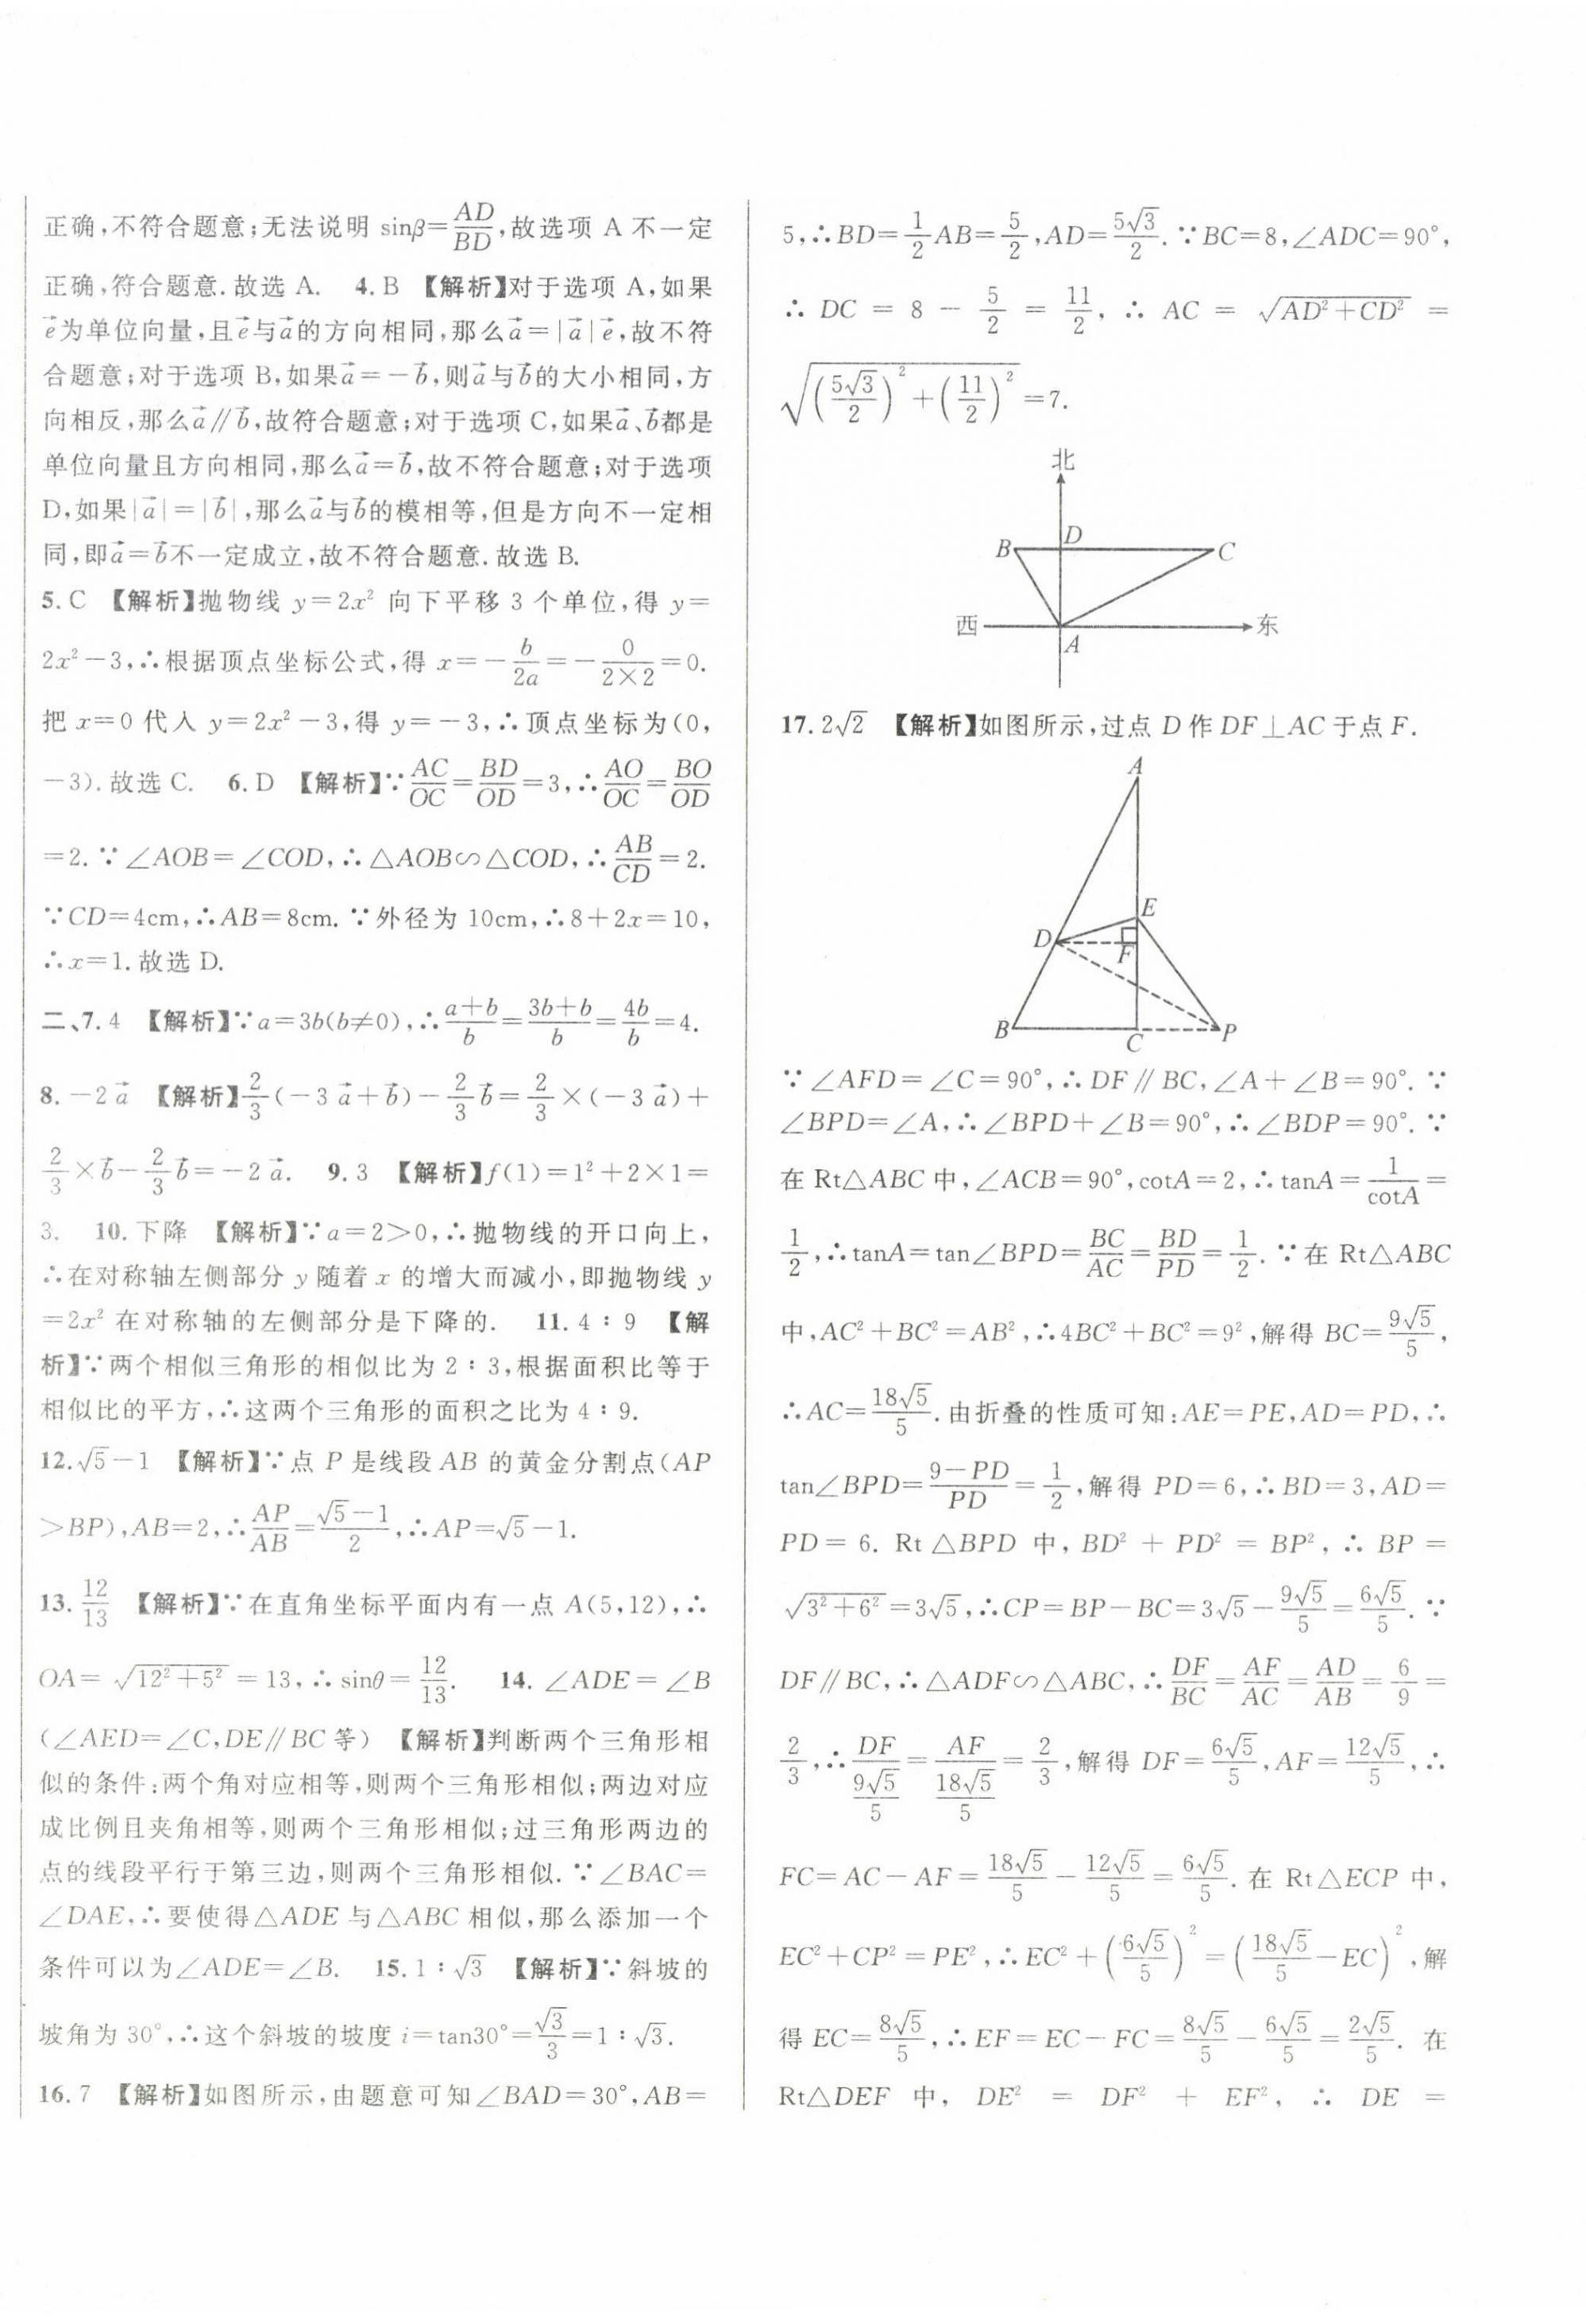 正确,不符合题意;无法说明 sinβ=AD/BD,故选项 A 不一定
正确,符合题意.故选 A. 4.B 【解析】对于选项 A,如果
e⃗为单位向量,且e⃗与a⃗的方向相同,那么a⃗=|a⃗|e⃗,故不符
合题意;对于选项 B,如果a⃗=-b⃗,则a⃗与b⃗的大小相同,方
向相反,那么a⃗∥b⃗,故符合题意;对于选项 C,如果a⃗、b⃗都是
单位向量且方向相同,那么a⃗=b⃗,故不符合题意;对于选项
D,如果|a⃗|=|b⃗|,那么a⃗与b⃗的模相等,但是方向不一定相
同,即a⃗=b⃗不一定成立,故不符合题意.故选 B.
5.C 【解析】抛物线 y=2x² 向下平移 3 个单位,得 y=
2x²-3,∴根据顶点坐标公式,得 x=-b/2a=-0/(2×2)=0.
把 x=0 代入 y=2x²-3,得 y=-3,∴顶点坐标为(0,
-3).故选 C. 6.D 【解析】∵AC/OC=BD/OD=3,∴AO/OC=BO/OD
=2.∵∠AOB=∠COD,∴△AOB∽△COD,∴AB/CD=2.
∵CD=4cm,∴AB=8cm.∵外径为 10cm,∴8+2x=10,
∴x=1.故选 D.
二、7.4 【解析】∵a=3b(b≠0),∴(a+b)/b=(3b+b)/b=4b/b=4.
8.-2a⃗ 【解析】2/3(-3a⃗+b⃗)-2/3b⃗=2/3×(-3a⃗)+
2/3×b⃗-2/3b⃗=-2a⃗. 9.3 【解析】f(1)=1²+2×1=
3. 10.下降 【解析】∵a=2>0,∴抛物线的开口向上,
∴在对称轴左侧部分 y 随着 x 的增大而减小,即抛物线 y
=2x² 在对称轴的左侧部分是下降的. 11.4∶9 【解
析】∵两个相似三角形的相似比为 2∶3,根据面积比等于
相似比的平方,∴这两个三角形的面积之比为 4∶9.
12.√5-1 【解析】∵点 P 是线段 AB 的黄金分割点(AP
>BP),AB=2,∴AP/AB=(√5-1)/2,∴AP=√5-1.
13.12/13 【解析】∵在直角坐标平面内有一点 A(5,12),∴
OA=√(12²+5²)=13,∴sinθ=12/13. 14.∠ADE=∠B
(∠AED=∠C,DE∥BC 等) 【解析】判断两个三角形相
似的条件:两个角对应相等,则两个三角形相似;两边对应
成比例且夹角相等,则两个三角形相似;过三角形两边的
点的线段平行于第三边,则两个三角形相似.∵∠BAC=
∠DAE,∴要使得△ADE 与△ABC 相似,那么添加一个
条件可以为∠ADE=∠B. 15.1∶√3 【解析】∵斜坡的
坡角为 30°,∴这个斜坡的坡度 i=tan30°=√3/3=1∶√3.
16.7 【解析】如图所示,由题意可知∠BAD=30°,AB=
5,∴BD=1/2AB=5/2,AD=5√3/2.∵BC=8,∠ADC=90°,
∴ DC = 8 - 5/2 = 11/2, ∴ AC = √(AD²+CD²) =
√((5√3/2)²+(11/2)²)=7.
北
B D C
西 东
A
17.2√2 【解析】如图所示,过点 D 作 DF⊥AC 于点 F.
A
E
D
F
B C P
∵∠AFD=∠C=90°,∴DF∥BC,∠A+∠B=90°.∵
∠BPD=∠A,∴∠BPD+∠B=90°,∴∠BDP=90°.∵
在 Rt△ABC 中,∠ACB=90°,cotA=2,∴tanA=1/cotA=
1/2,∴tanA=tan∠BPD=BC/AC=BD/PD=1/2.∵在 Rt△ABC
中,AC²+BC²=AB²,∴4BC²+BC²=9²,解得 BC=9√5/5,
∴AC=18√5/5.由折叠的性质可知:AE=PE,AD=PD,∴
tan∠BPD=(9-PD)/PD=1/2,解得 PD=6,∴BD=3,AD=
PD=6. Rt△BPD 中,BD² + PD² = BP²,∴ BP =
√(3²+6²)=3√5,∴CP=BP-BC=3√5-9√5/5=6√5/5.∵
DF∥BC,∴△ADF∽△ABC,∴DF/BC=AF/AC=AD/AB=6/9=
2/3,∴DF/(9√5/5)=AF/(18√5/5)=2/3,解得 DF=6√5/5,AF=12√5/5,∴
FC=AC-AF=18√5/5-12√5/5=6√5/5.在 Rt△ECP 中,
EC²+CP²=PE²,∴EC²+(6√5/5)²=(18√5/5-EC)²,解
得 EC=8√5/5,∴EF=EC-FC=8√5/5-6√5/5=2√5/5.在
Rt△DEF 中, DE² = DF² + EF², ∴ DE =